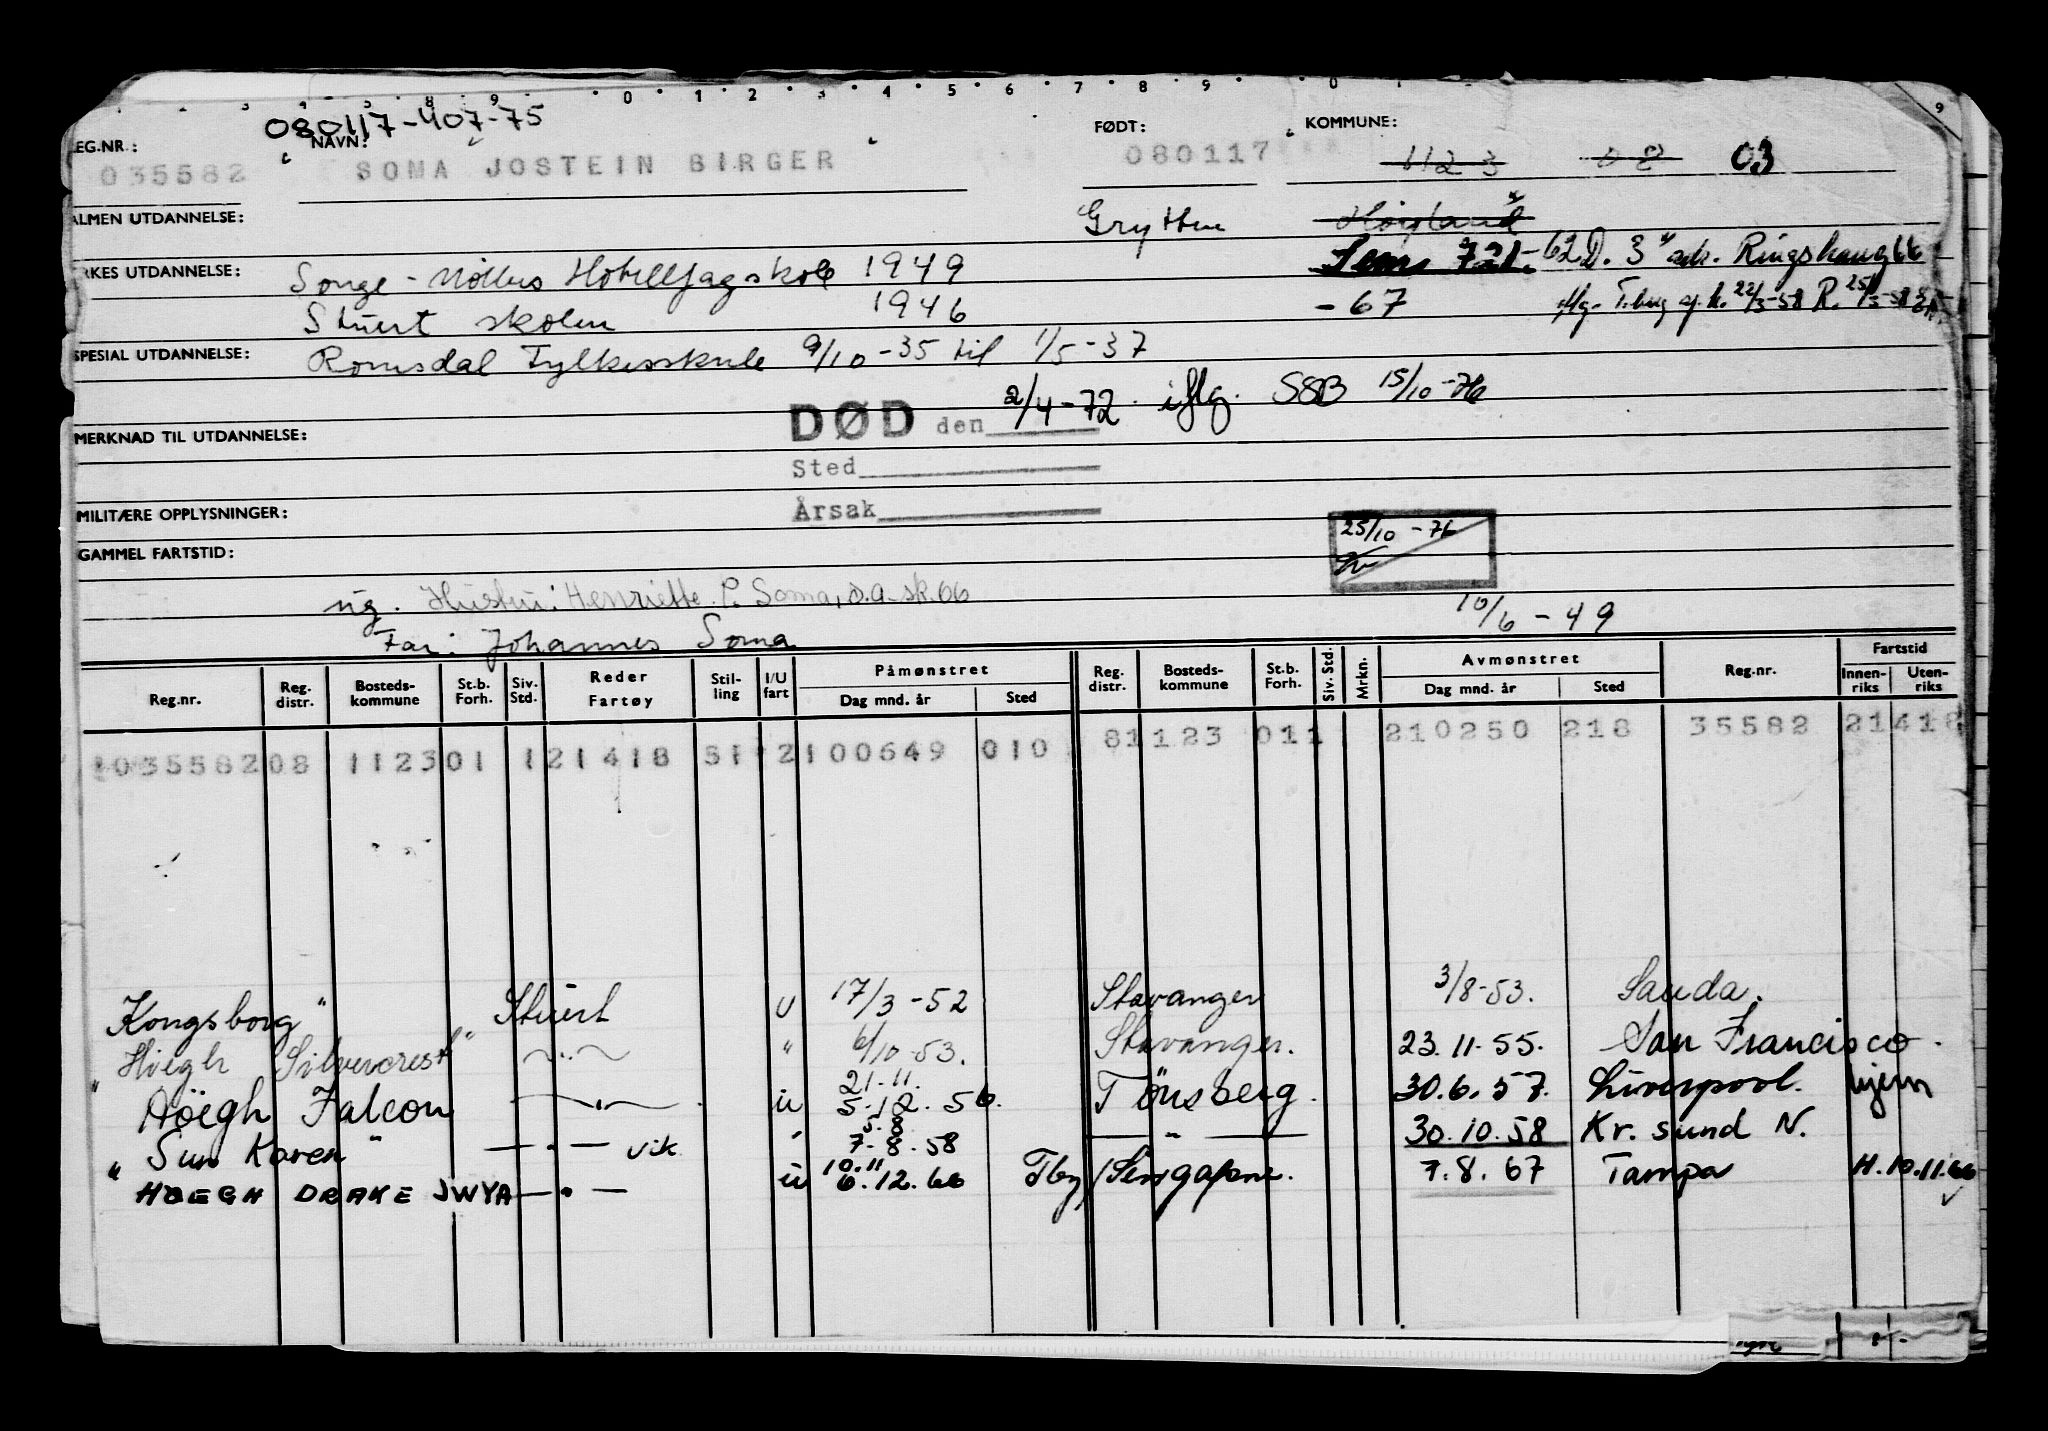 3 4 5 8 9 0 1 2 3 4 5 6 7 8 9 0 1 9
080117-407-75
EG.NR.: NAVN: FØDT: KOMMUNE:
035582 SOMA JOSTEIN BIRGER 080117 1123 08 03
ALMEN UTDANNELSE: Grytten Høyland
RKES UTDANNELSE: Songe-Møllers Hotellfagskole 1949 Sem 721-62 D. 3 Ringshaug 66
Stuert skolen 1946 -67 22/3-58 R. 25/3-58
SPESIAL UTDANNELSE: Romsdal Fylkesskule 9/10-35 til 1/5-37
DØD den 2/4-72. iflg. SSB 15/10-76
MERKNAD TIL UTDANNELSE:
Sted
MILITÆRE OPPLYSNINGER: Årsak
25/10-76
GAMMEL FARTSTID:
ug. Hustru: Henriette P. Soma, s.a. sk. 66
10/6-49
Far: Johannes Soma
Reg.nr. Reg. distr. Bosteds-kommune St.b. Forh. Siv. Std. Reder Fartøy Stil-ling I/U fart Påmønstret Dag mnd. år Sted Reg. distr. Bosteds-kommune St.b. Forh. Siv. Std. Mrkn. Avmønstret Dag mnd. år Sted Reg.nr. Fartstid Innen-riks Uten-riks
103558208 112301 121418 51 2100649 010 81123 011 210250 218 35582 21418
Kongsborg " Stuert U 17/3-52 Stavanger 3/8-53. Sauda.
Höegh Silvercrest " —"— " 6/10-53. Stavanger. 23.11.55. San Francisco.
21.11.
" Höegh Falcon —"— u 5.12.56. Tönsberg. 30.6.57. Liverpool. hjem
5.8
Sun Karen " —"— vik " 7.8.58 —"— 30.10.58 Kr.sund N.
10.11
" HØEGH DRAKE JWYA —"— u 6.12.66 Tbg/Singapore. 7.8.67 Tampa H.10.11.66